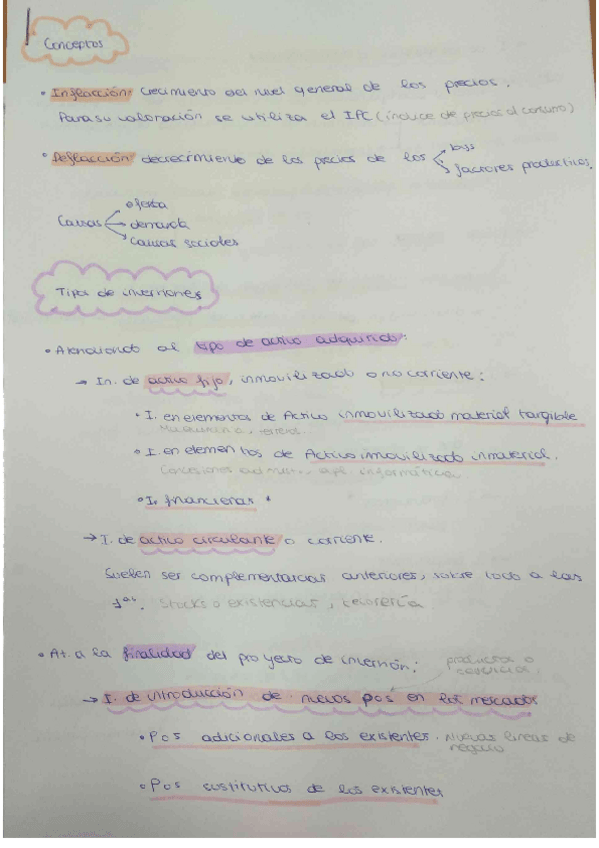 Conceptos
• Inflacción crecimiento del nivel general de los precios.
Para su valoración se utiliza el IPC (índice de precios al consumo)
• Deflacción decrecimiento de los precios de los
factores productivos.
oferta
Causas demanda
causas sociales
Tipos de inversiones
• Atendiendo al tipo de activo adquirido:
→ In. de activo fijo, inmovilizado o no corriente:
• I. en elementos de Activo inmovilizado material tangible
Maquinaria, terrenos.
• I. en elementos de Activo inmovilizado inmaterial.
Concesiones administ., apl. informática
• I. financieras
→ I. de activo circulante o corriente.
Suelen ser complementarias anteriores, sobre todo a las
1as. Stocks o existencias, tesorería.
• At. a la finalidad del proyecto de inversión:
productos o
→ I. de introducción de nuevos pos en los mercados
• Pos adicionales a los existentes. Nuevas líneas de
negocio
• Pos sustitutivos de los existentes